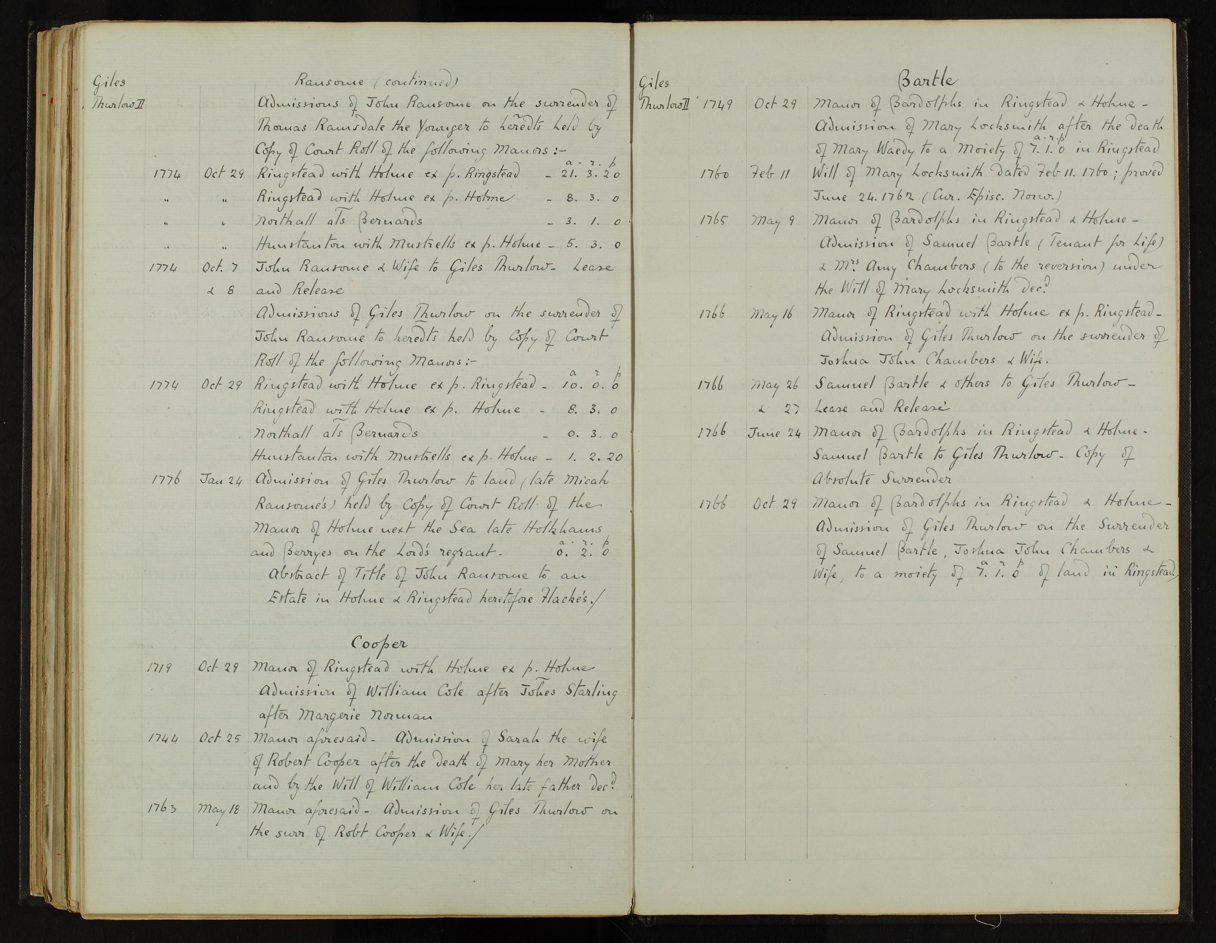 Giles
Thurlow II
Ransome (continued)
Admissions of John Ransome on the surrender of
Thomas Ramsdale the Younger to heredts held by
Copy of Court Roll of the following Manors:-
a. r. p
1774 Oct 29 Ringstead with Holme ex p. Ringstead - 21. 3. 20
" " Ringstead with Holme ex p. Holme - 8. 3. 0
" " Northall als Bernards - 3. 1. 0
" " Hunstanton with Mustrells ex p. Holme - 5. 3. 0
1774 Oct. 7 John Ransome & Wife to Giles Thurlow - Lease
& 8 and Release
Admissions of Giles Thurlow on the surrender of
John Ransome to heredts held by Copy of Court
Roll of the following Manors:-
a r p
1774 Oct 29 Ringstead with Holme ex p. Ringstead - 10. 0. 0
Ringstead with Holme ex p. Holme - 8. 3. 0
Northall als Bernards - 0. 3. 0
Hunstanton with Mustrells ex p. Holme - 1. 2. 20
1776 Jan 24 Admission of Giles Thurlow to land (late Micah
Ransome's) held by Copy of Court Roll of the
Manor of Holme next the Sea late Holkhams
a. r. p
and Berryes on the Lord's regrant. 0. 2. 0
Abstract of Title of John Ransome to an
Estate in Holme & Ringstead heretofore Flache's./
Cooper
1719 Oct 29 Manor of Ringstead with Holme ex p. Holme
Admission of William Cole after Johes Starling
after Margerie Norman
1744 Oct 25 Manor aforesaid - Admission of Sarah the wife
of Robert Cooper after the death of Mary her Mother
and by the Will of William Cole her late father decd
1763 May 18 Manor aforesaid - Admission of Giles Thurlow on
the surr of Robt Cooper & Wife./
Giles
Thurlow II
Bartle
1749 Oct 29 Manor of Bardolphs in Ringstead & Holme -
Admission of Mary Locksmith after the death
a. r. p
of Mary Waedy to a Moiety of 7. 1. 0 in Ringstead
1760 Feb 11 Will of Mary Locksmith dated Feb 11. 1760; proved
June 24. 1762 (Cur. Episc. Norw.)
1765 May 9 Manor of Bardolphs in Ringstead & Holme -
Admission of Samuel Bartle (Tenant for Life)
& Mrs Amy Chambers (to the reversion) under
the Will of Mary Locksmith decd
1766 May 16 Manor of Ringstead with Holme ex p. Ringstead -
Admission of Giles Thurlow on the surrender of
Joshua John Chambers & Wife.
1766 May 26 Samuel Bartle & others to Giles Thurlow -
& 27 Lease and Release
1766 June 24 Manor of Bardolphs in Ringstead & Holme -
Samuel Bartle to Giles Thurlow - Copy of
Absolute Surrender
1766 Oct 29 Manor of Bardolphs in Ringstead & Holme -
Admission of Giles Thurlow on the Surrender
of Samuel Bartle, Joshua John Chambers &
a r p
Wife, to a moiety of 7. 1. 0 of land in Ringstead